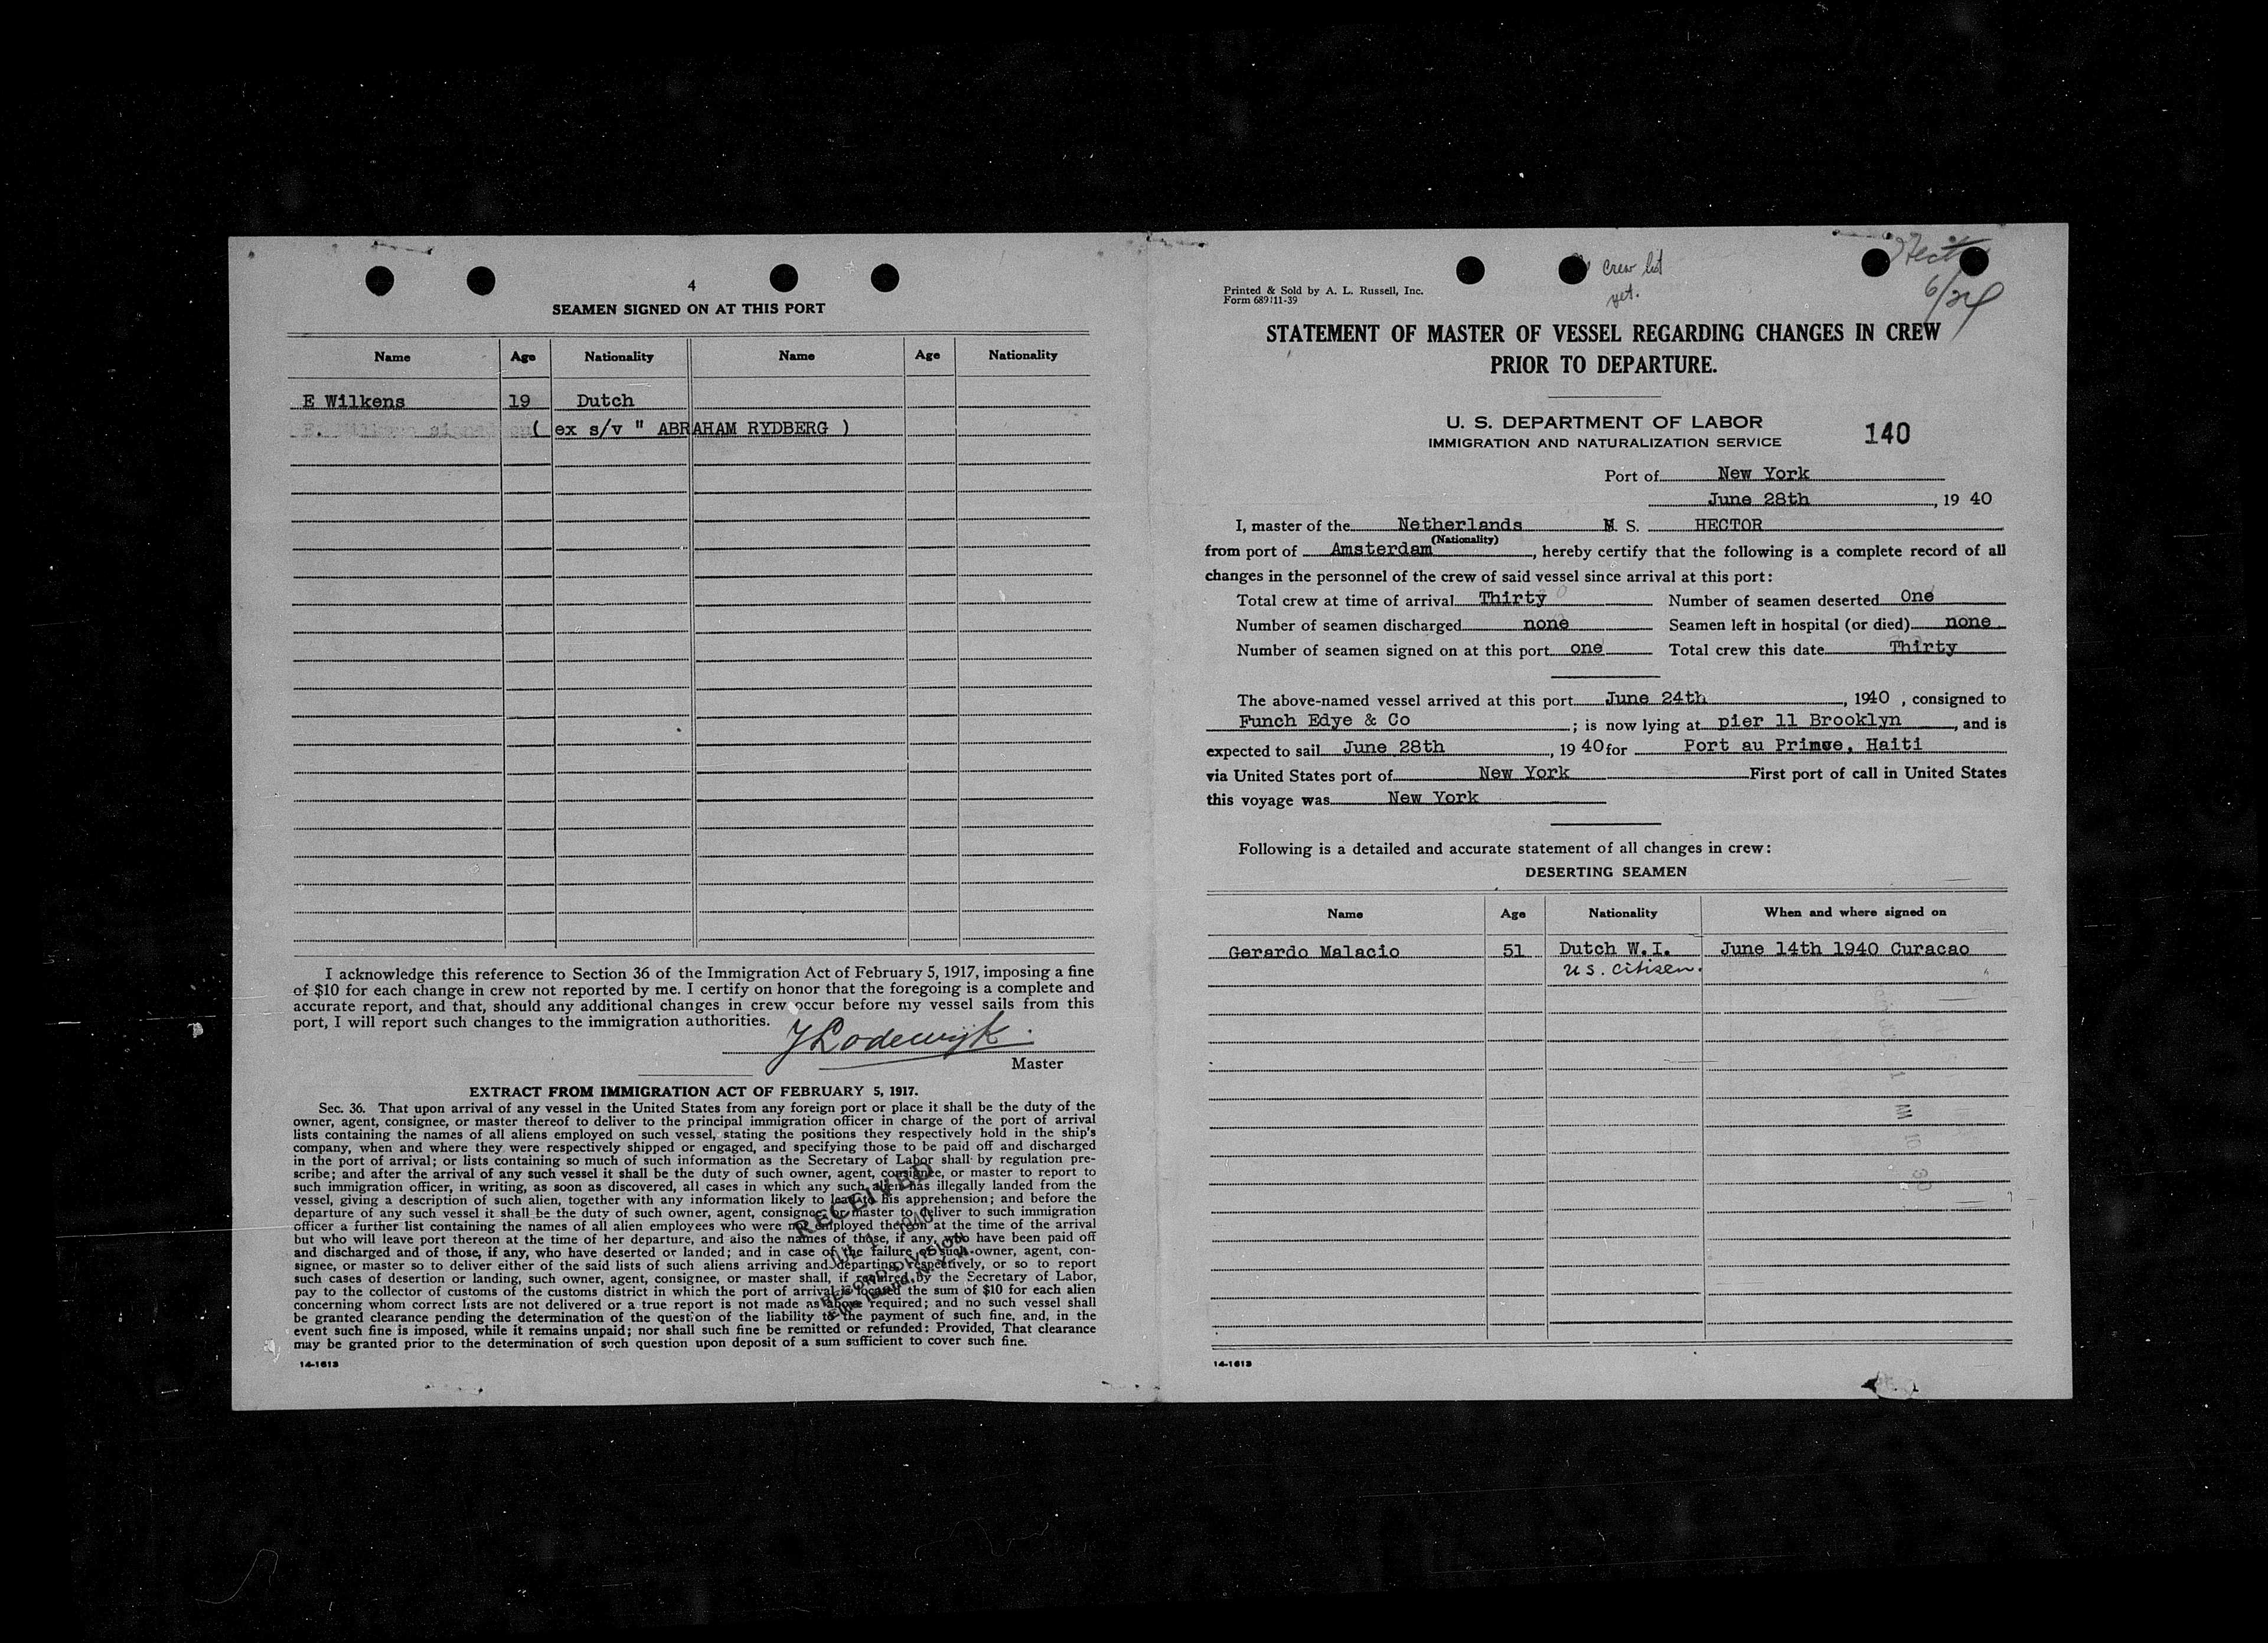 4
SEAMEN SIGNED ON AT THIS PORT
Name Age Nationality Name Age Nationality
E Wilkens 19 Dutch
( ex s/v " ABRAHAM RYDBERG )
I acknowledge this reference to Section 36 of the Immigration Act of February 5, 1917, imposing a fine
of $10 for each change in crew not reported by me. I certify on honor that the foregoing is a complete and
accurate report, and that, should any additional changes in crew occur before my vessel sails from this
port, I will report such changes to the immigration authorities.
JLodewijk.
Master
EXTRACT FROM IMMIGRATION ACT OF FEBRUARY 5, 1917.
Sec. 36. That upon arrival of any vessel in the United States from any foreign port or place it shall be the duty of the
owner, agent, consignee, or master thereof to deliver to the principal immigration officer in charge of the port of arrival
lists containing the names of all aliens employed on such vessel, stating the positions they respectively hold in the ship's
company, when and where they were respectively shipped or engaged, and specifying those to be paid off and discharged
in the port of arrival; or lists containing so much of such information as the Secretary of Labor shall by regulation pre-
scribe; and after the arrival of any such vessel it shall be the duty of such owner, agent, consignee, or master to report to
such immigration officer, in writing, as soon as discovered, all cases in which any such alien has illegally landed from the
vessel, giving a description of such alien, together with any information likely to lead to his apprehension; and before the
departure of any such vessel it shall be the duty of such owner, agent, consignee, or master to deliver to such immigration
officer a further list containing the names of all alien employees who were not employed thereon at the time of the arrival
but who will leave port thereon at the time of her departure, and also the names of those, if any, who have been paid off
and discharged and of those, if any, who have deserted or landed; and in case of the failure of such owner, agent, con-
signee, or master so to deliver either of the said lists of such aliens arriving and departing, respectively, or so to report
such cases of desertion or landing, such owner, agent, consignee, or master shall, if required by the Secretary of Labor,
pay to the collector of customs of the customs district in which the port of arrival is located the sum of $10 for each alien
concerning whom correct lists are not delivered or a true report is not made as above required; and no such vessel shall
be granted clearance pending the determination of the question of the liability to the payment of such fine, and, in the
event such fine is imposed, while it remains unpaid; nor shall such fine be remitted or refunded: Provided, That clearance
may be granted prior to the determination of such question upon deposit of a sum sufficient to cover such fine.
RECEIVED
1940
RECORD DIVISION
Ellis Island, N. Y. H.
14-1613
crew list
yet.
Hector
6/24
Printed & Sold by A. L. Russell, Inc.
Form 689 11-39
STATEMENT OF MASTER OF VESSEL REGARDING CHANGES IN CREW
PRIOR TO DEPARTURE.
U. S. DEPARTMENT OF LABOR
IMMIGRATION AND NATURALIZATION SERVICE
140
Port of New York
June 28th, 19 40
I, master of the Netherlands M. S. HECTOR
(Nationality)
from port of Amsterdam, hereby certify that the following is a complete record of all
changes in the personnel of the crew of said vessel since arrival at this port:
Total crew at time of arrival Thirty Number of seamen deserted One
Number of seamen discharged none Seamen left in hospital (or died) none
Number of seamen signed on at this port one Total crew this date Thirty
The above-named vessel arrived at this port June 24th, 1940, consigned to
Funch Edye & Co; is now lying at pier 11 Brooklyn, and is
expected to sail June 28th, 19 40 for Port au Prince, Haiti
via United States port of New York First port of call in United States
this voyage was New York
Following is a detailed and accurate statement of all changes in crew:
DESERTING SEAMEN
Name Age Nationality When and where signed on
Gerardo Malacio 51 Dutch W.I. June 14th 1940 Curacao
U S. citisen.
14-1613